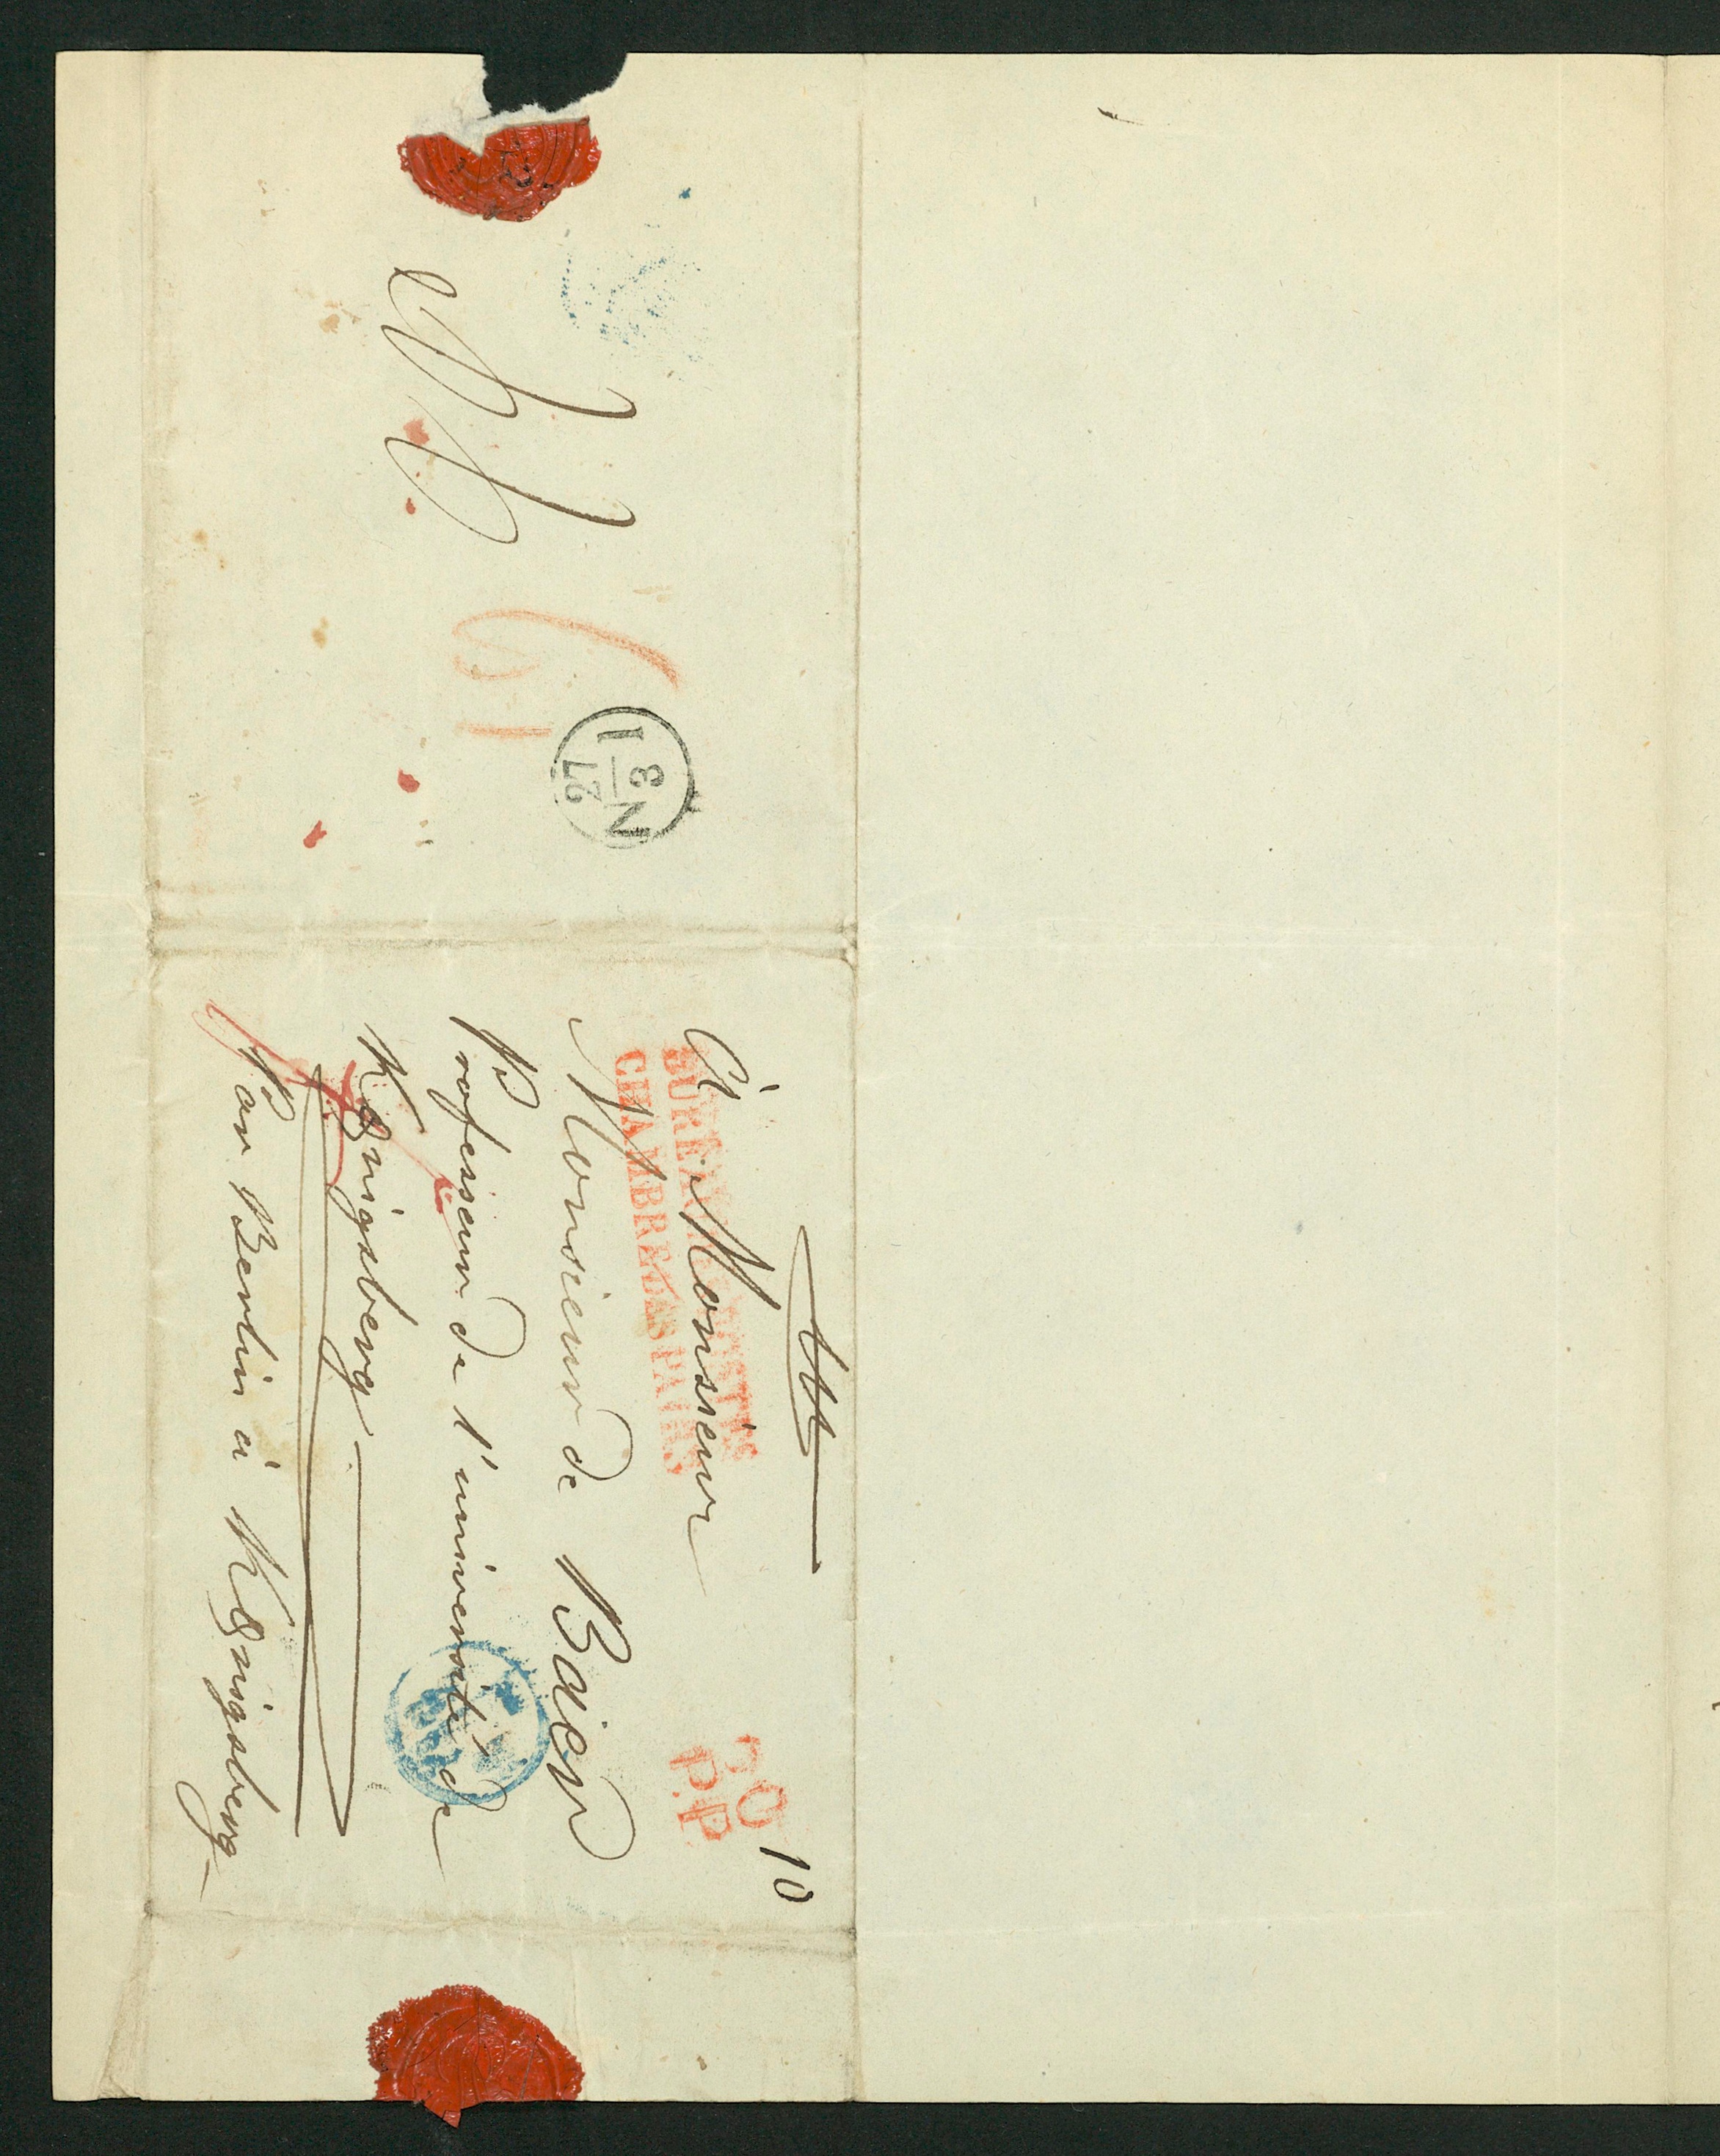 10
À Monsieur
Monsieur de Baier
Professeur de l'université de
Kœnigsberg
Par Berlin à Kœnigsberg
BUREAU
CHAMBRE DES PAIRS
P.P.
N 1
27
3